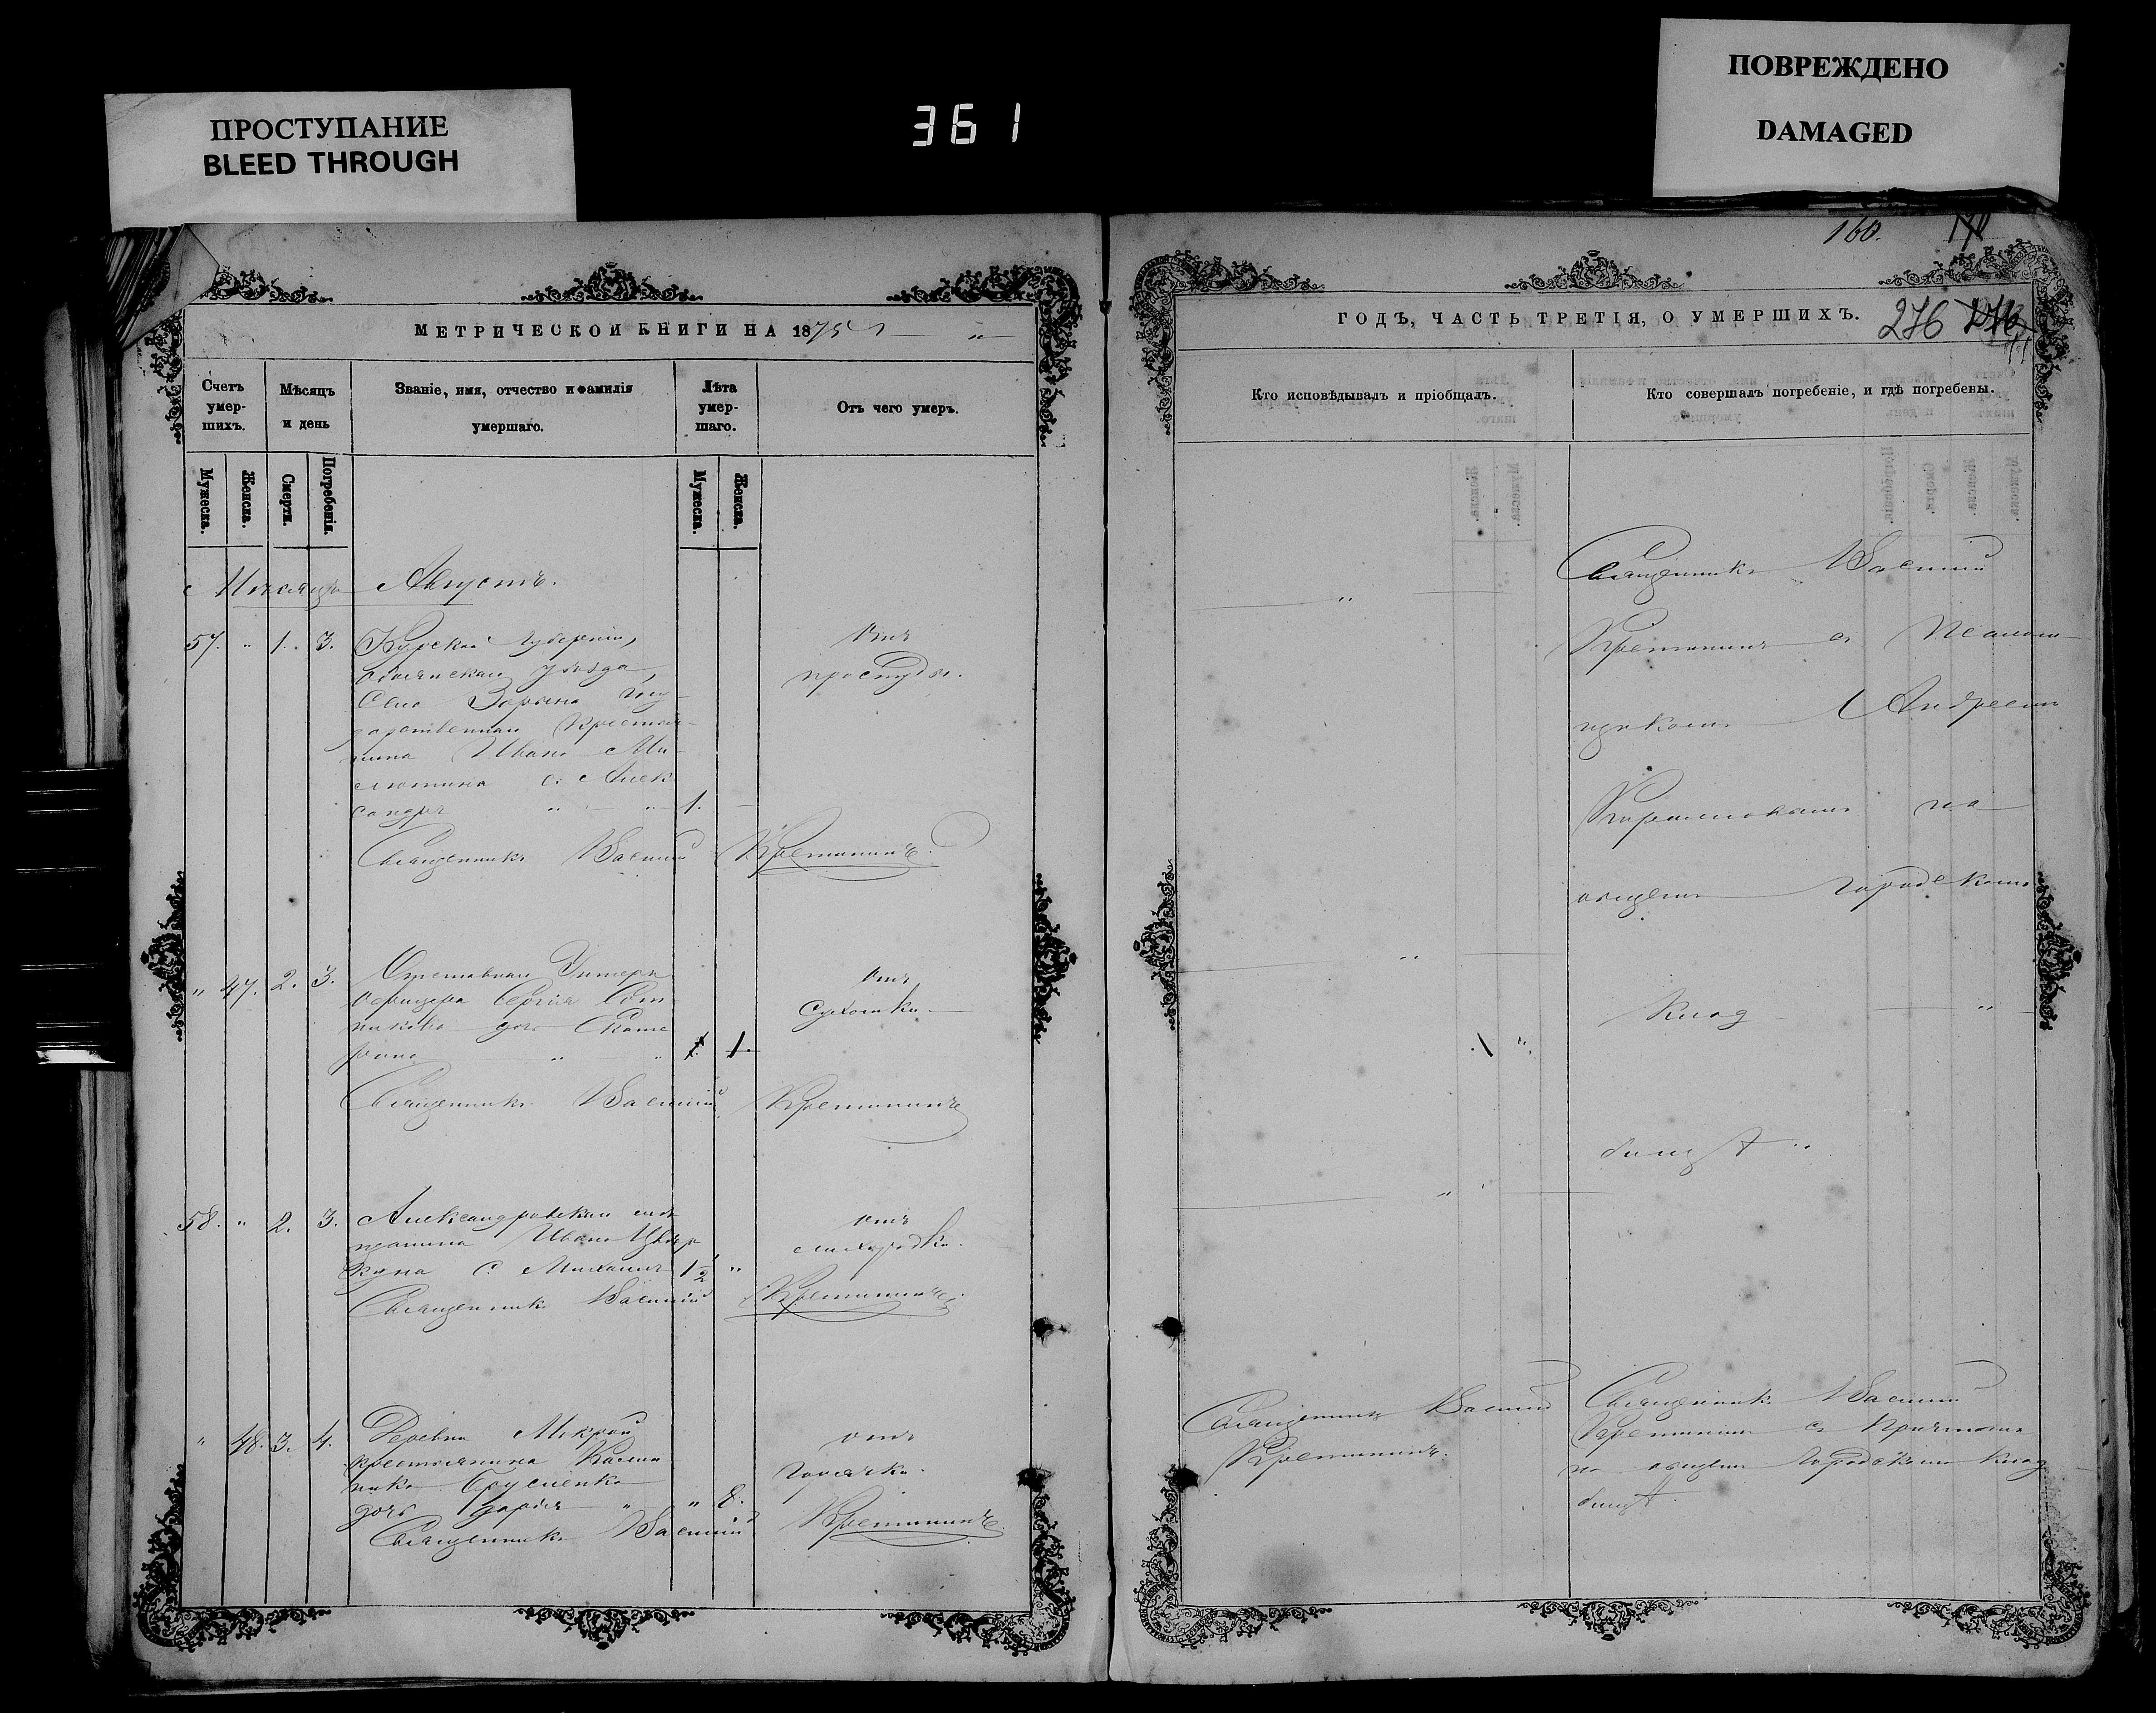 ПРОСТУПАНИЕ
BLEED THROUGH
361
ПОВРЕЖДЕНО
DAMAGED
МЕТРИЧЕСКОЙ КНИГИ НА 1875
Счетъ умер-шихъ.
Мѣсяцъ и день
Званіе, имя, отчество и фамилія умершаго.
Лѣта умер-шаго.
Отъ чего умеръ.
Мужеска.
Женска.
Смерти.
Погребенія.
Мужеска.
Женска.
Мѣсяцъ Августъ.
57. " 1. 3. Курской губерніи,
Отъ
уѣзда,
простуды.
Села Зорина Госу-
дарственнаго Крестья-
нина Ивана Ми-
лютина с. Алек
сандръ " " 1.
Священникъ Василій Кретининъ.
" 47. 2. 3. Отставнаго Унтеръ
Отъ
офицера Сергія
сухотки
дочь Екате
рина " " 1.
Священникъ Василій Кретининъ
58. " 2. 3. Александровскаго мѣ
отъ
щанина Ивана
с. Михаилъ 1 1/2 "
Священникъ Василій Кретининъ
" 48. 3. 4. Деревни Мокрой
отъ
крестьянина Калин
горячки.
дочь Дарія " " 8.
Священникъ Василій Кретининъ
160.
ГОДЪ, ЧАСТЬ ТРЕТІЯ, О УМЕРШИХЪ.
276
Кто исповѣдывалъ и пріобщалъ.
Кто совершалъ погребеніе, и гдѣ погребены.
Священникъ Василій
Кретининъ съ Псалом-
щикомъ Андреемъ
на
общемъ городскомъ
клад
бищѣ
Священникъ Василій
Кретининъ.
Священникъ Василій
Кретининъ съ причтомъ
на общемъ городскомъ клад
бищѣ